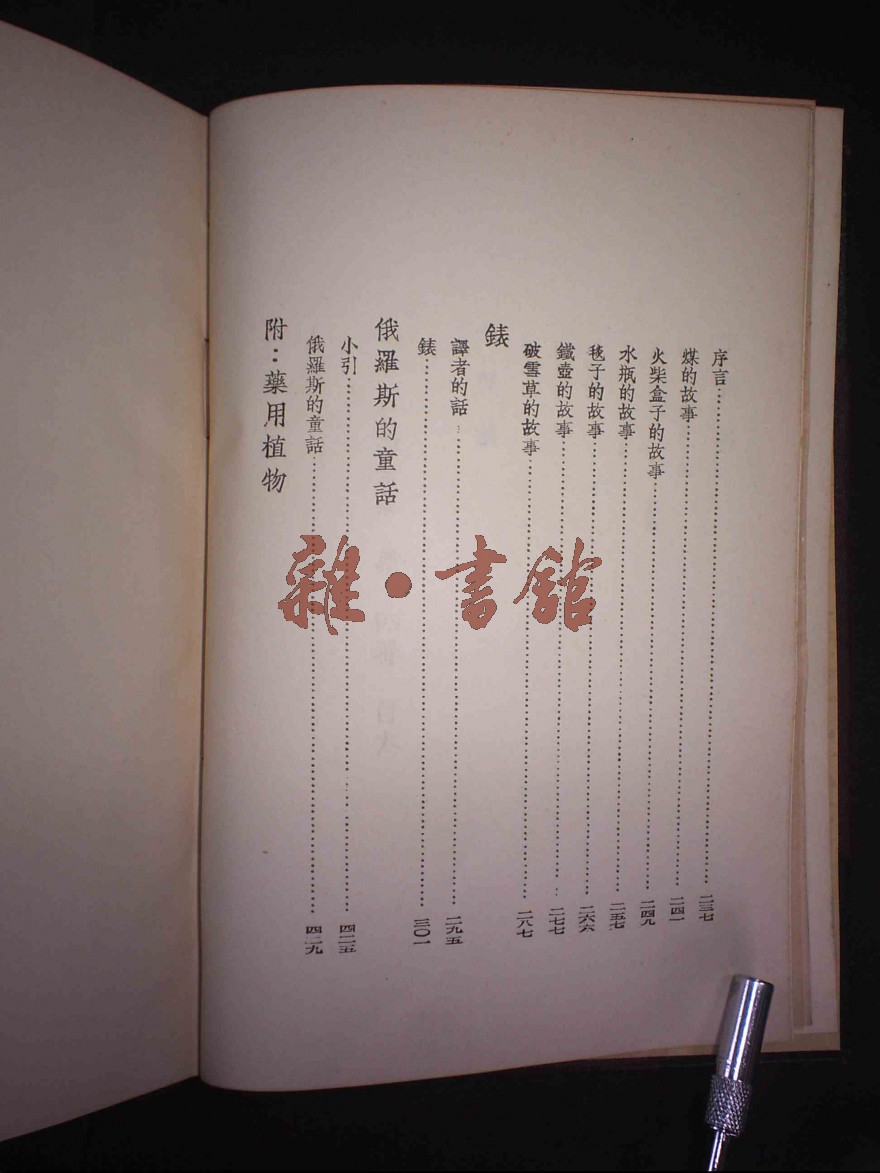 序言……二三七
煤的故事……二四一
火柴盒子的故事……二四九
水瓶的故事……二五七
毯子的故事……二六六
鐵壺的故事……二七七
破雪草的故事……二八七
錶
譯者的話……二九五
錶……三〇一
俄羅斯的童話
小引……四二五
俄羅斯的童話……四二九
附：藥用植物
雜·書館